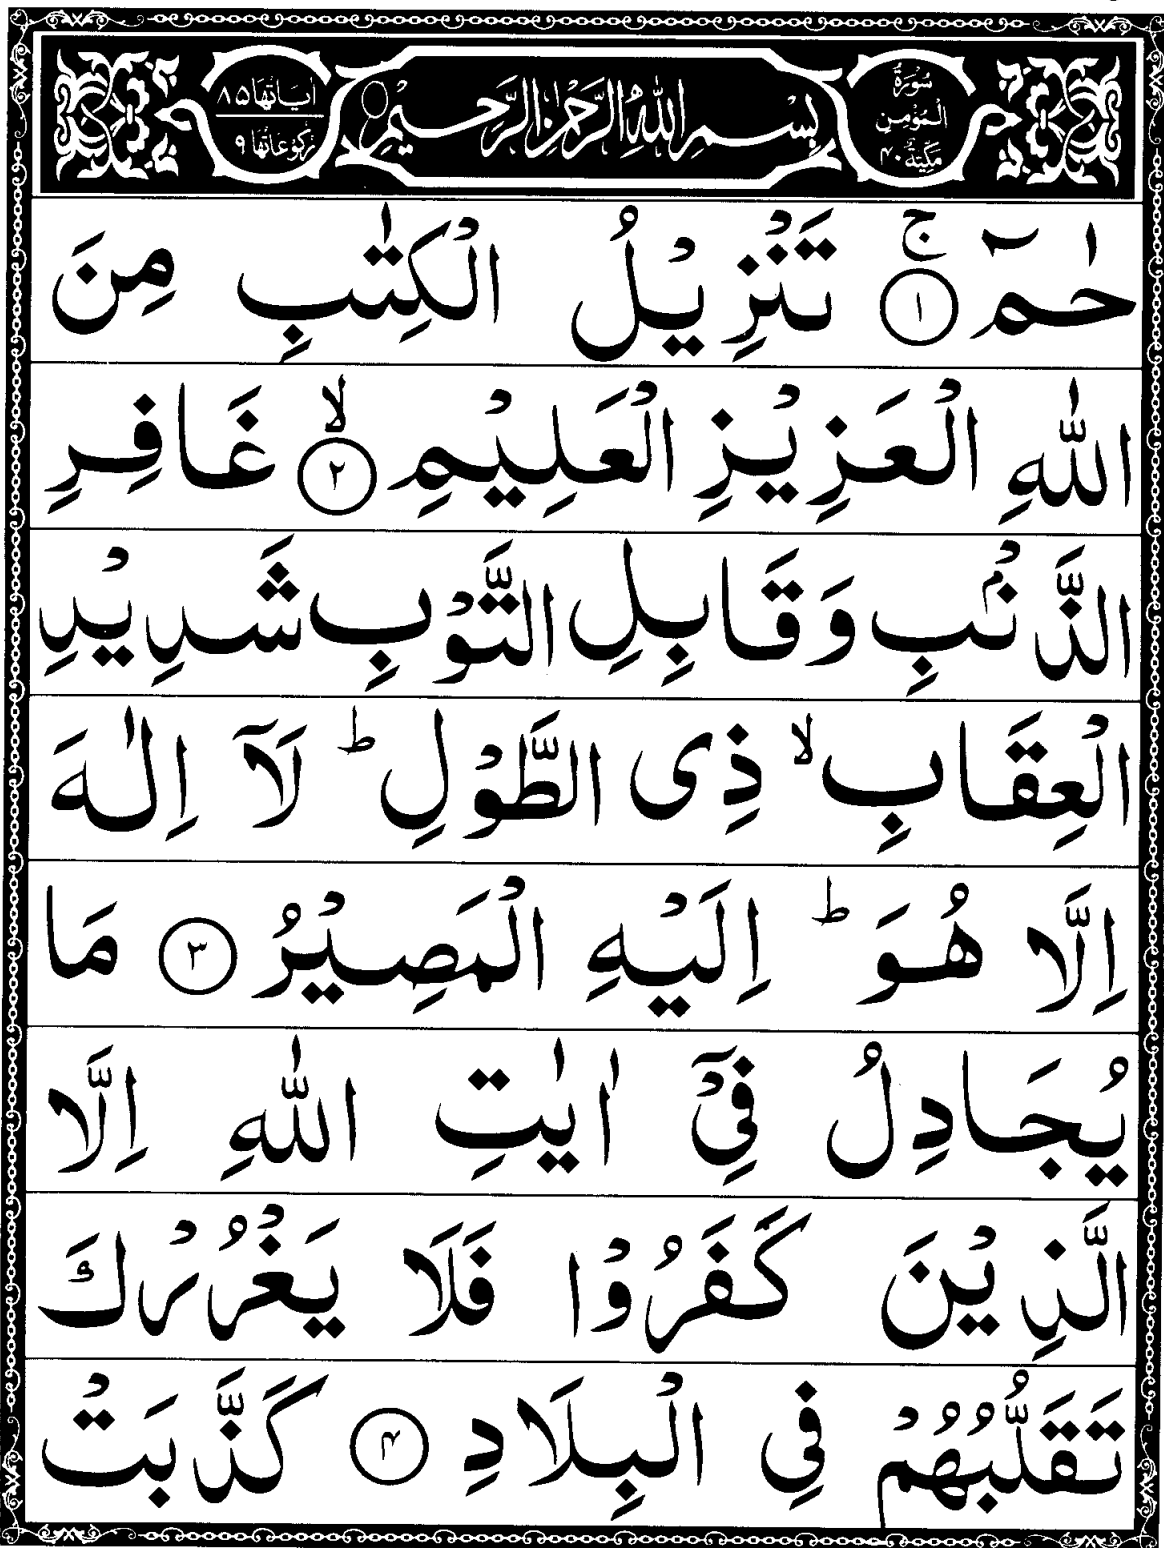 سُوْرَةُ
الْمُؤْمِنِ
مَكِّيَّةٌ ۴۰
بِسْمِ اللّٰهِ الرَّحْمٰنِ الرَّحِیْمِ
اٰیَاتُهَا ۸۵
رُكُوْعَاتُهَا ۹
حٰمٓ ۚ ﴿۱﴾ تَنْزِیْلُ الْكِتٰبِ مِنَ
اللّٰهِ الْعَزِیْزِ الْعَلِیْمِ ۙ ﴿۲﴾ غَافِرِ
الذَّنْۢبِ وَقَابِلِ التَّوْبِ شَدِیْدِ
الْعِقَابِ ۙ ذِی الطَّوْلِ ؕ لَاۤ اِلٰهَ
اِلَّا هُوَ ؕ اِلَیْهِ الْمَصِیْرُ ﴿۳﴾ مَا
یُجَادِلُ فِیْۤ اٰیٰتِ اللّٰهِ اِلَّا
الَّذِیْنَ كَفَرُوْا فَلَا یَغْرُرْكَ
تَقَلُّبُهُمْ فِی الْبِلَادِ ﴿۴﴾ كَذَّبَتْ